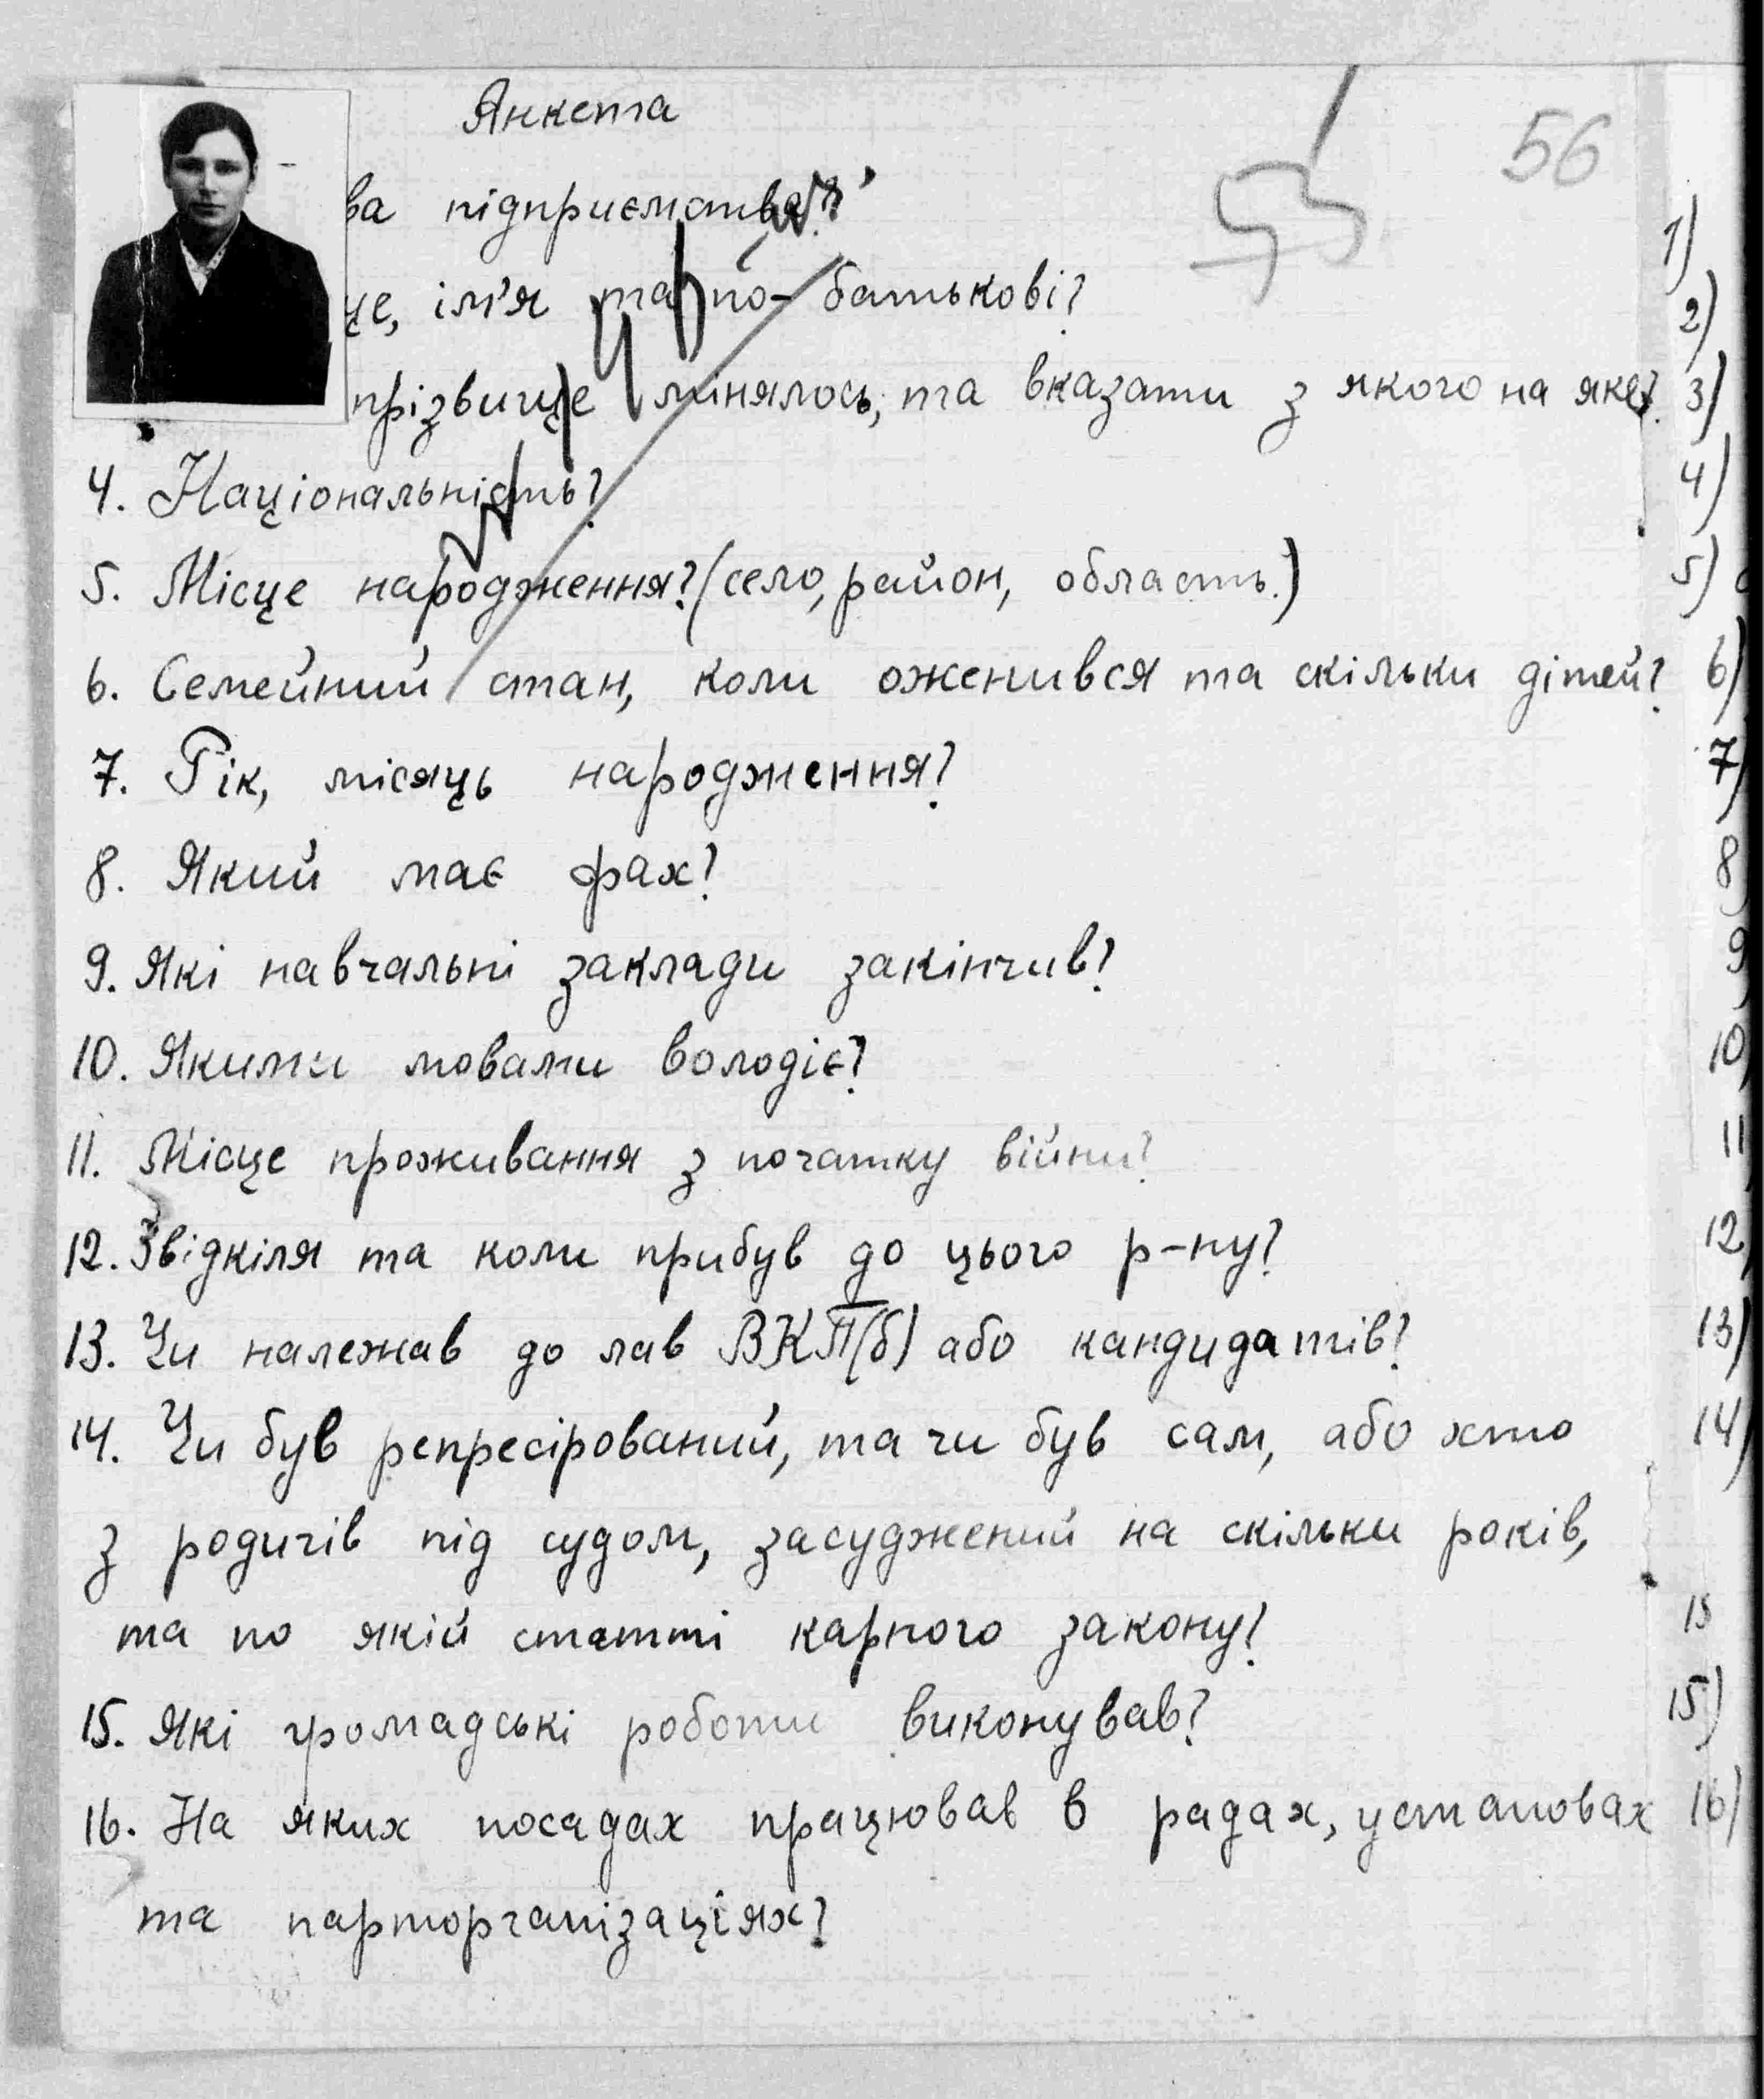 Анкета
56
ва підприємства?
це, ім'я та по-батькові?
прізвище мінялось, та вказати з якого на яке?
4. Національність?
5. Місце народження? (село, район, область.)
6. Семейний стан, коли оженився та скільки дітей?
7. Рік, місяць народження?
8. Який має фах?
9. Які навчальні заклади закінчив?
10. Якими мовами володіє?
11. Місце проживання з початку війни?
12. Звідкіля та коли прибув до цього р-ну?
13. Чи належав до лав ВКП(б) або кандидатів?
14. Чи був репресірований, та чи був сам, або хто
з родичів під судом, засуджений на скільки років,
та по якій статті карного закону?
15. Які громадські роботи виконував?
16. На яких посадах працював в радах, установах
та парторганізаціях?
1)
2)
3)
4)
5)
6)
7)
8
9
10
11
12
13)
14)
15
15)
16)